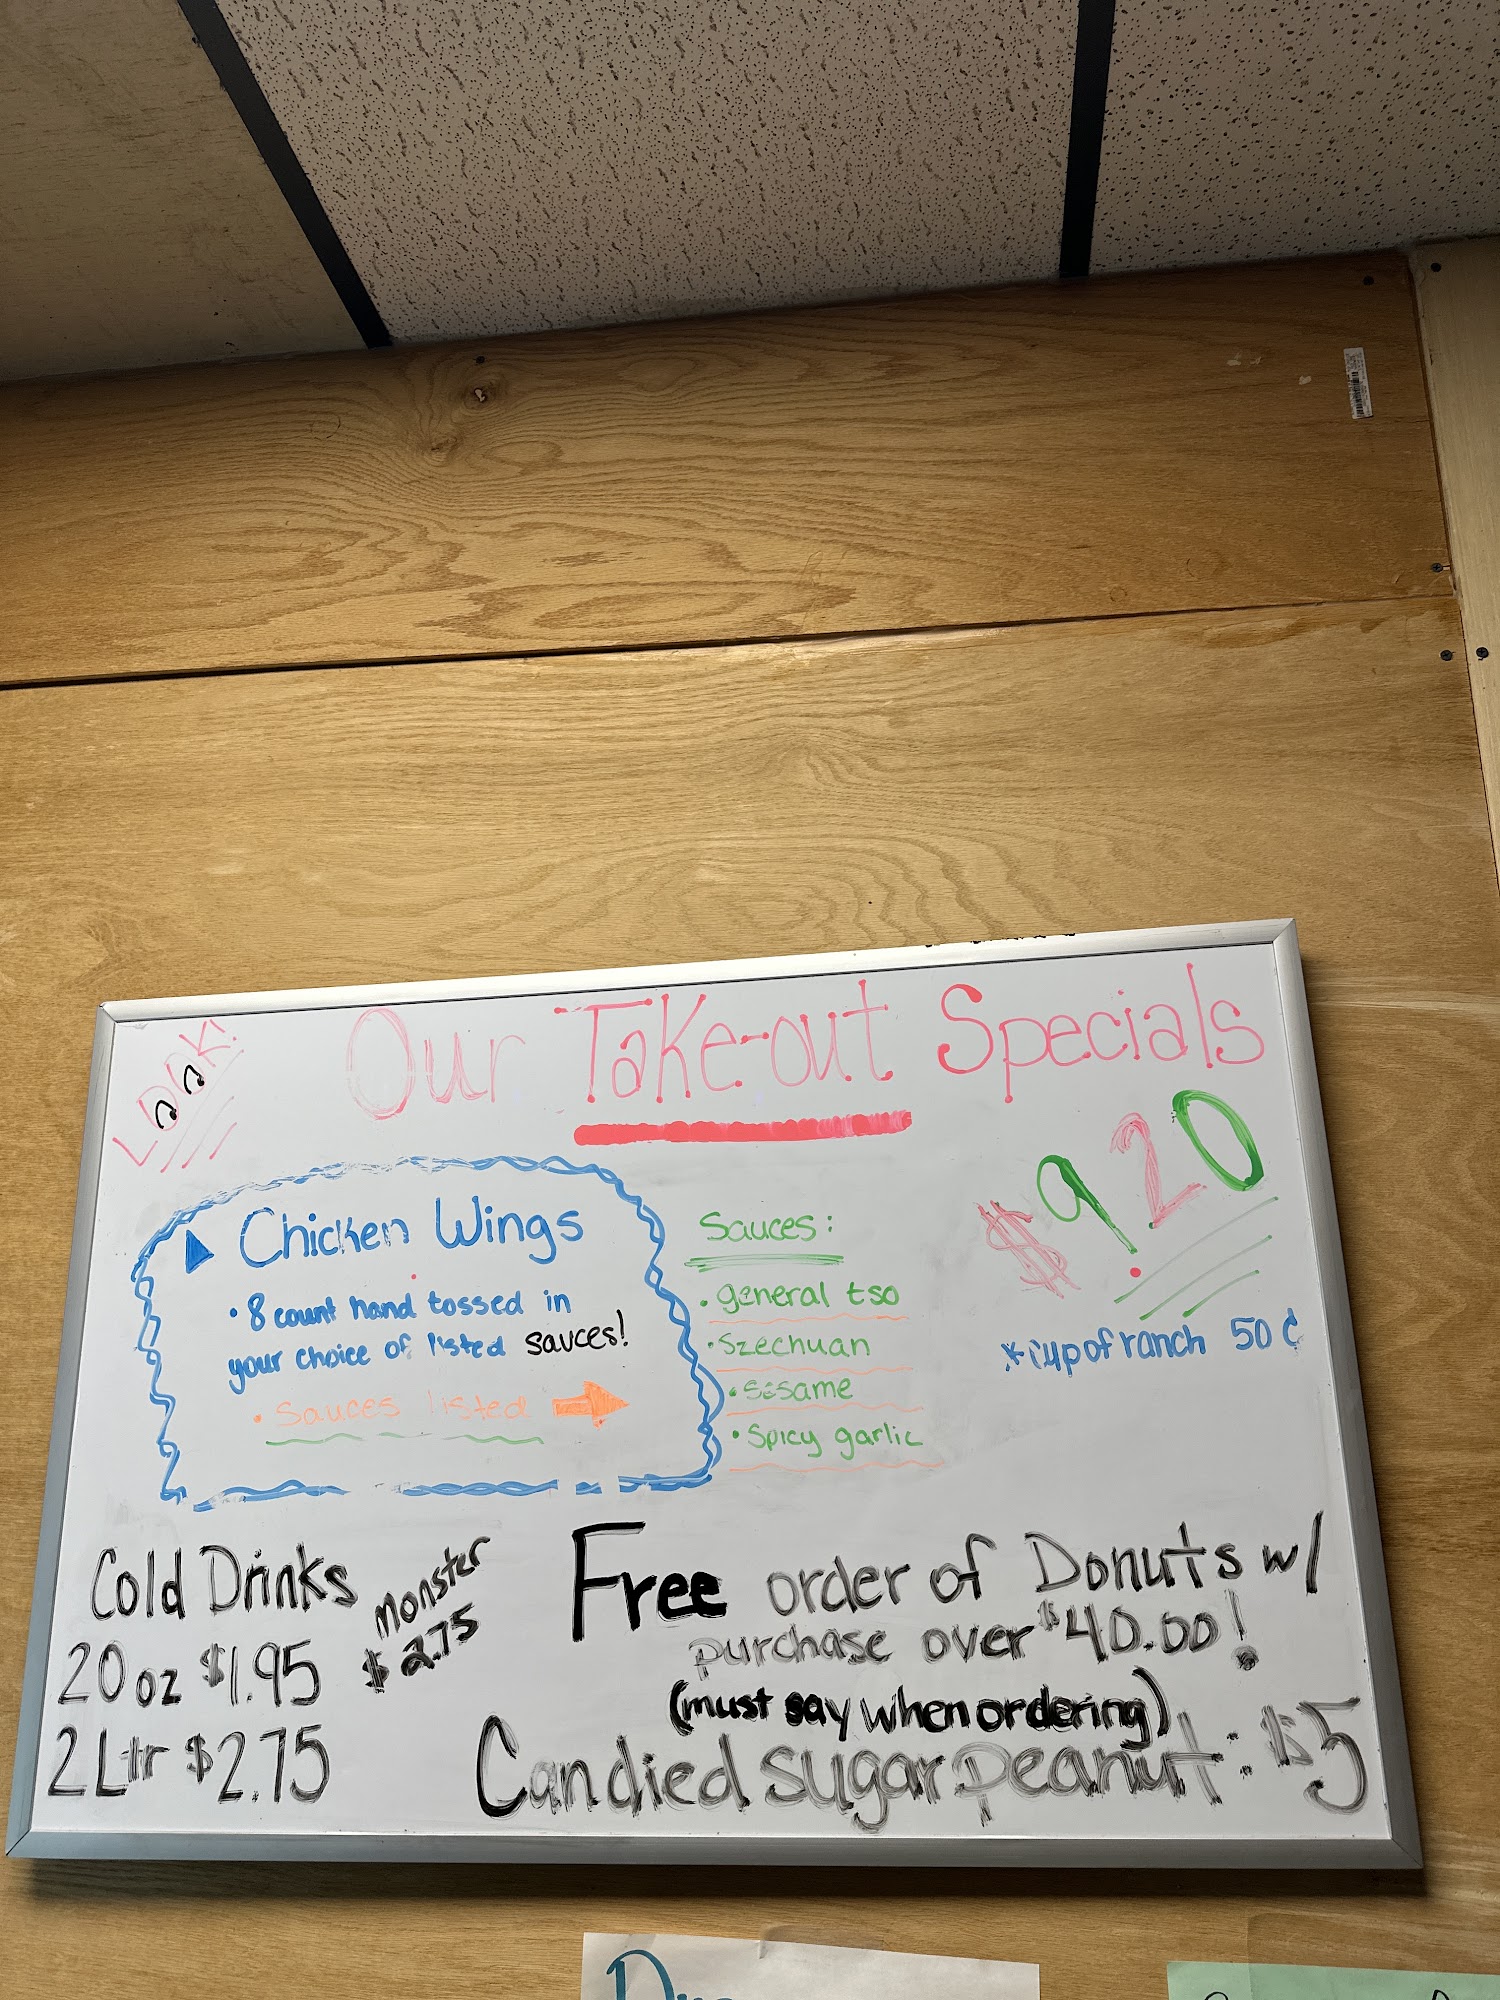 LOOK!
Our Take-out Specials
$9.20
Chicken Wings
• 8 count hand tossed in
your choice of listed sauces!
• Sauces listed
Sauces:
• general tso
• Szechuan
• Sesame
• Spicy garlic
* cup of ranch 50 ¢
Cold Drinks
20 oz $1.95
2 Ltr $2.75
Monster
$2.75
Free order of Donuts w/
purchase over $40.00!
(must say when ordering)
Candied sugar peanut: $5